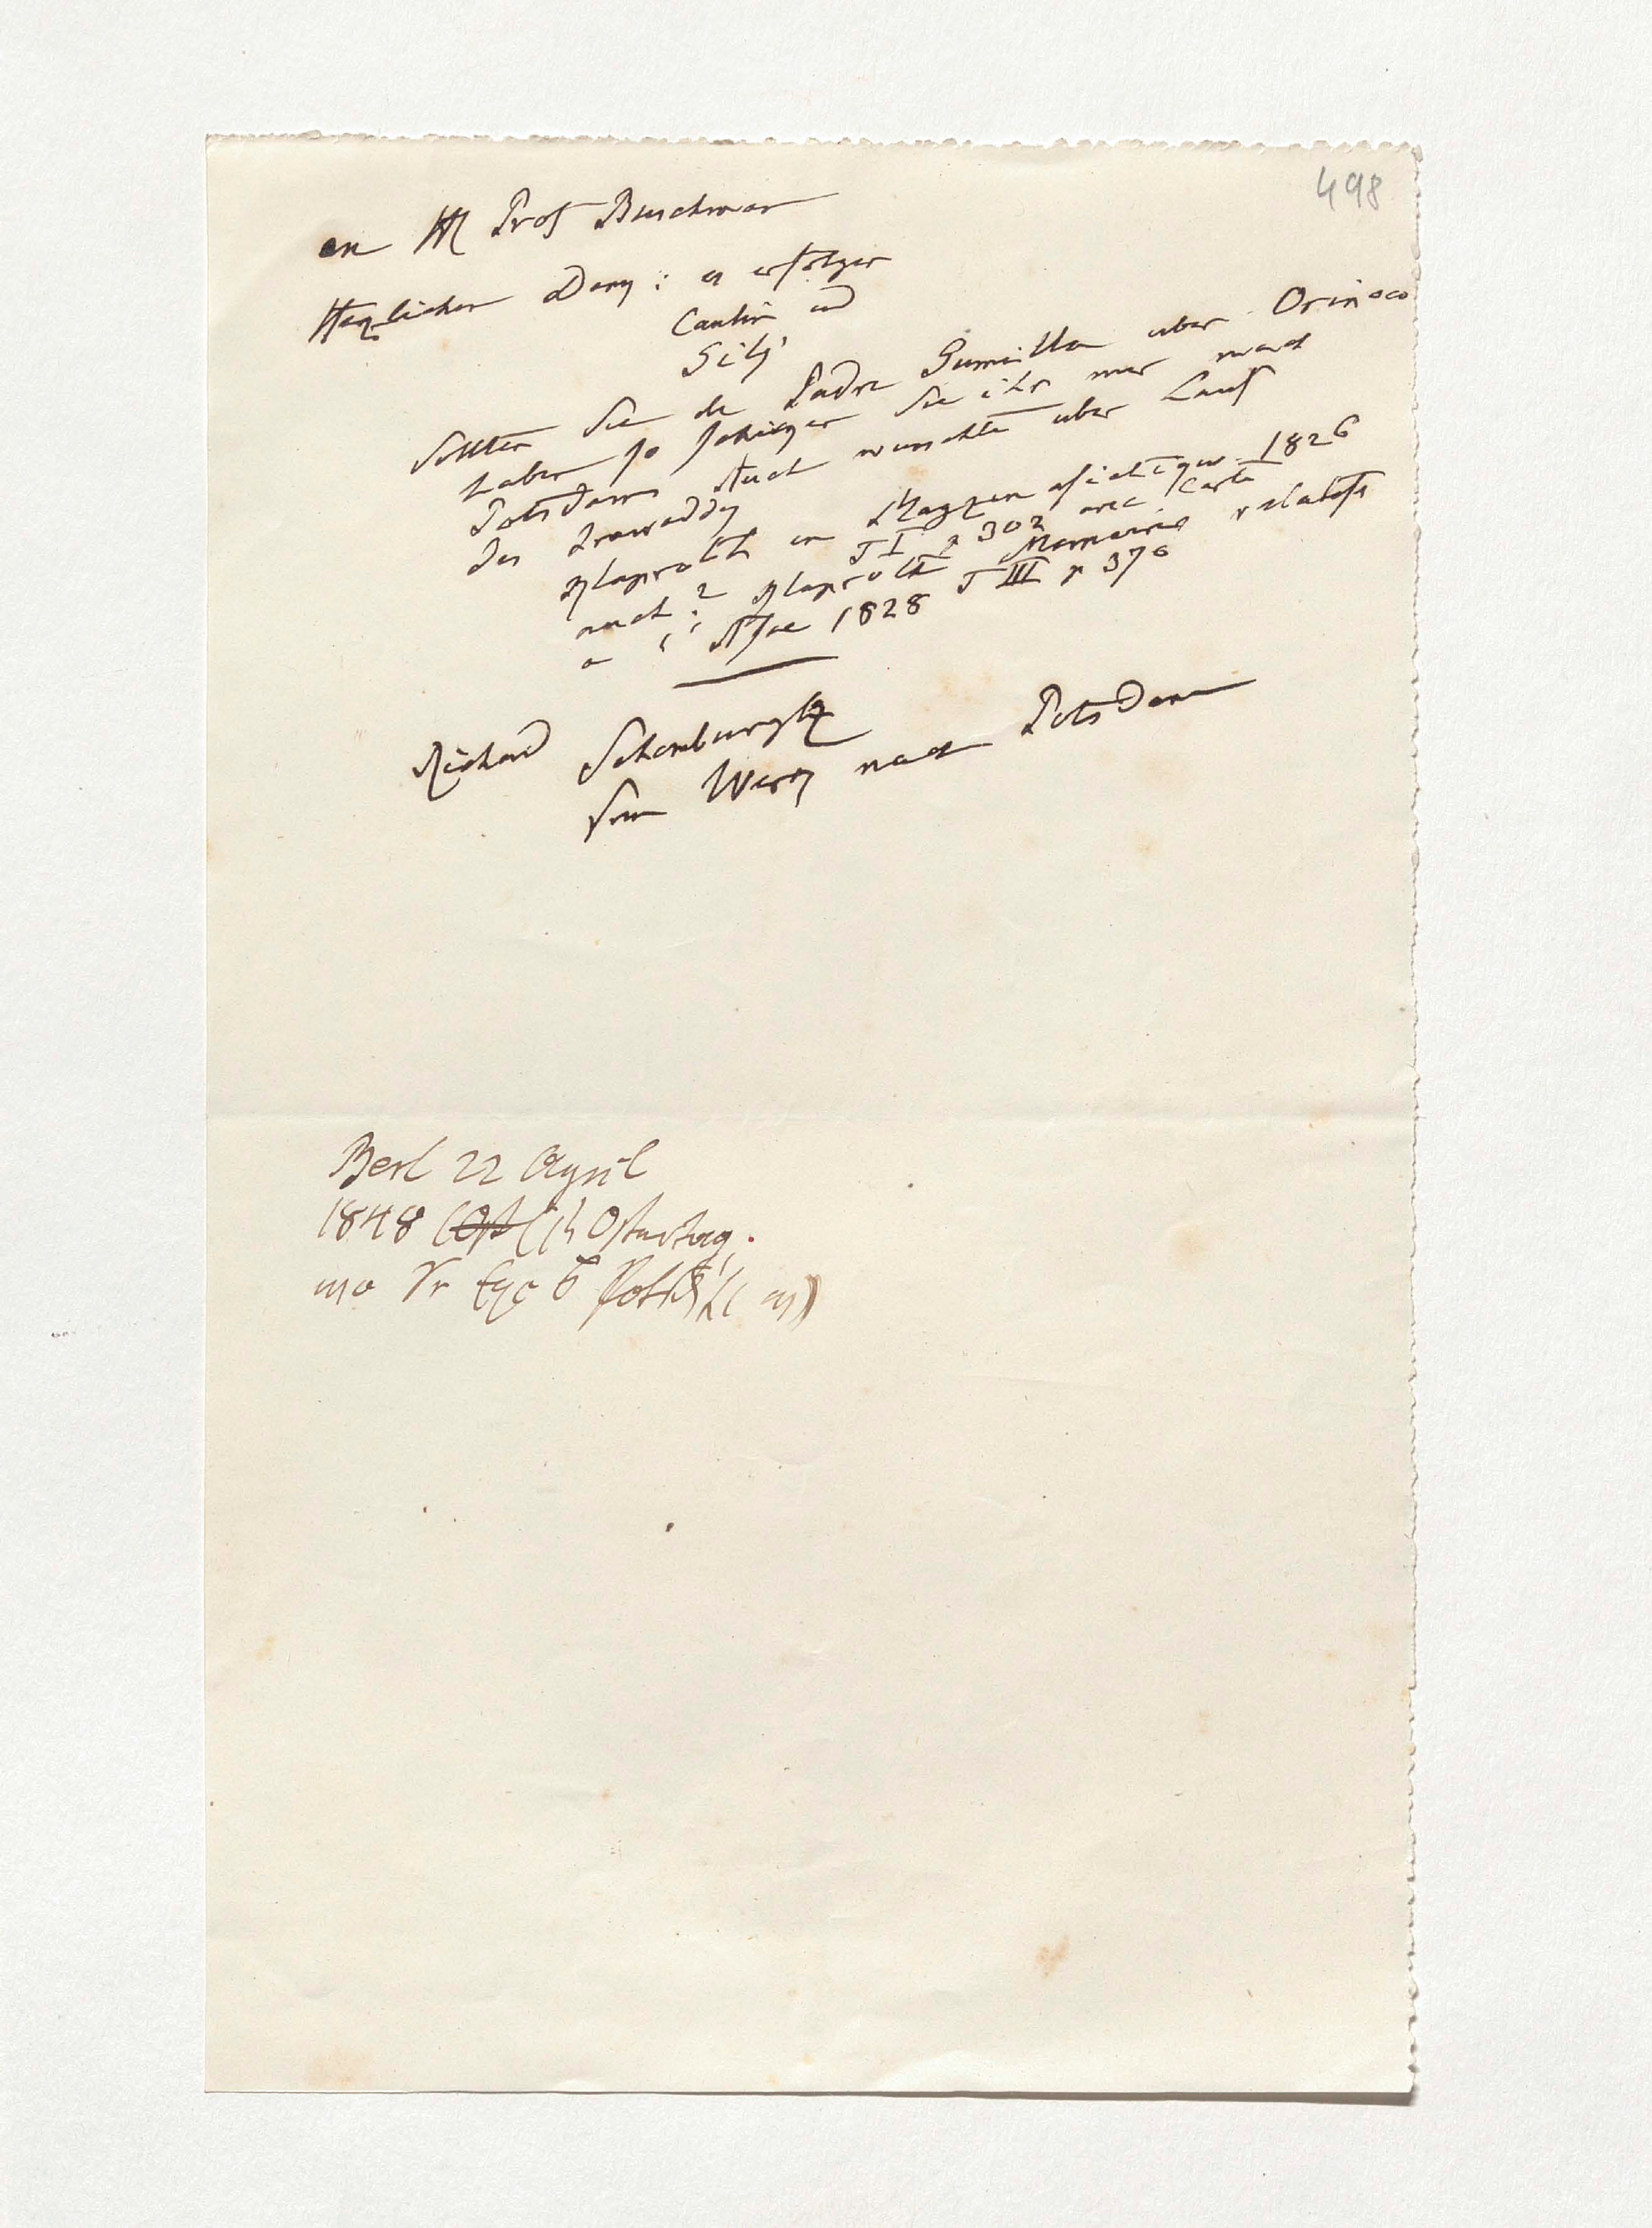 498
an H Prof Buschman
Herzlichen Dank: es erfolgen
Caulin und
Gilij
Sollten Sie den Padre Gumilla uber Orinoco
haben so schicken Sie ihn mir nach
Potsdam Auch wunschte uber Lauf
des Irawaddy
Klaproth im Magazin asiatique 1826
T I p 302 avec Carte
auch 2 Klaproth Memoires relatifs
a l'Asie 1828 T III p 370
Richard Schomburgk
sein Werk nach Potsdam
Berl 22 April
1848 (Ost (1st Ostertag.